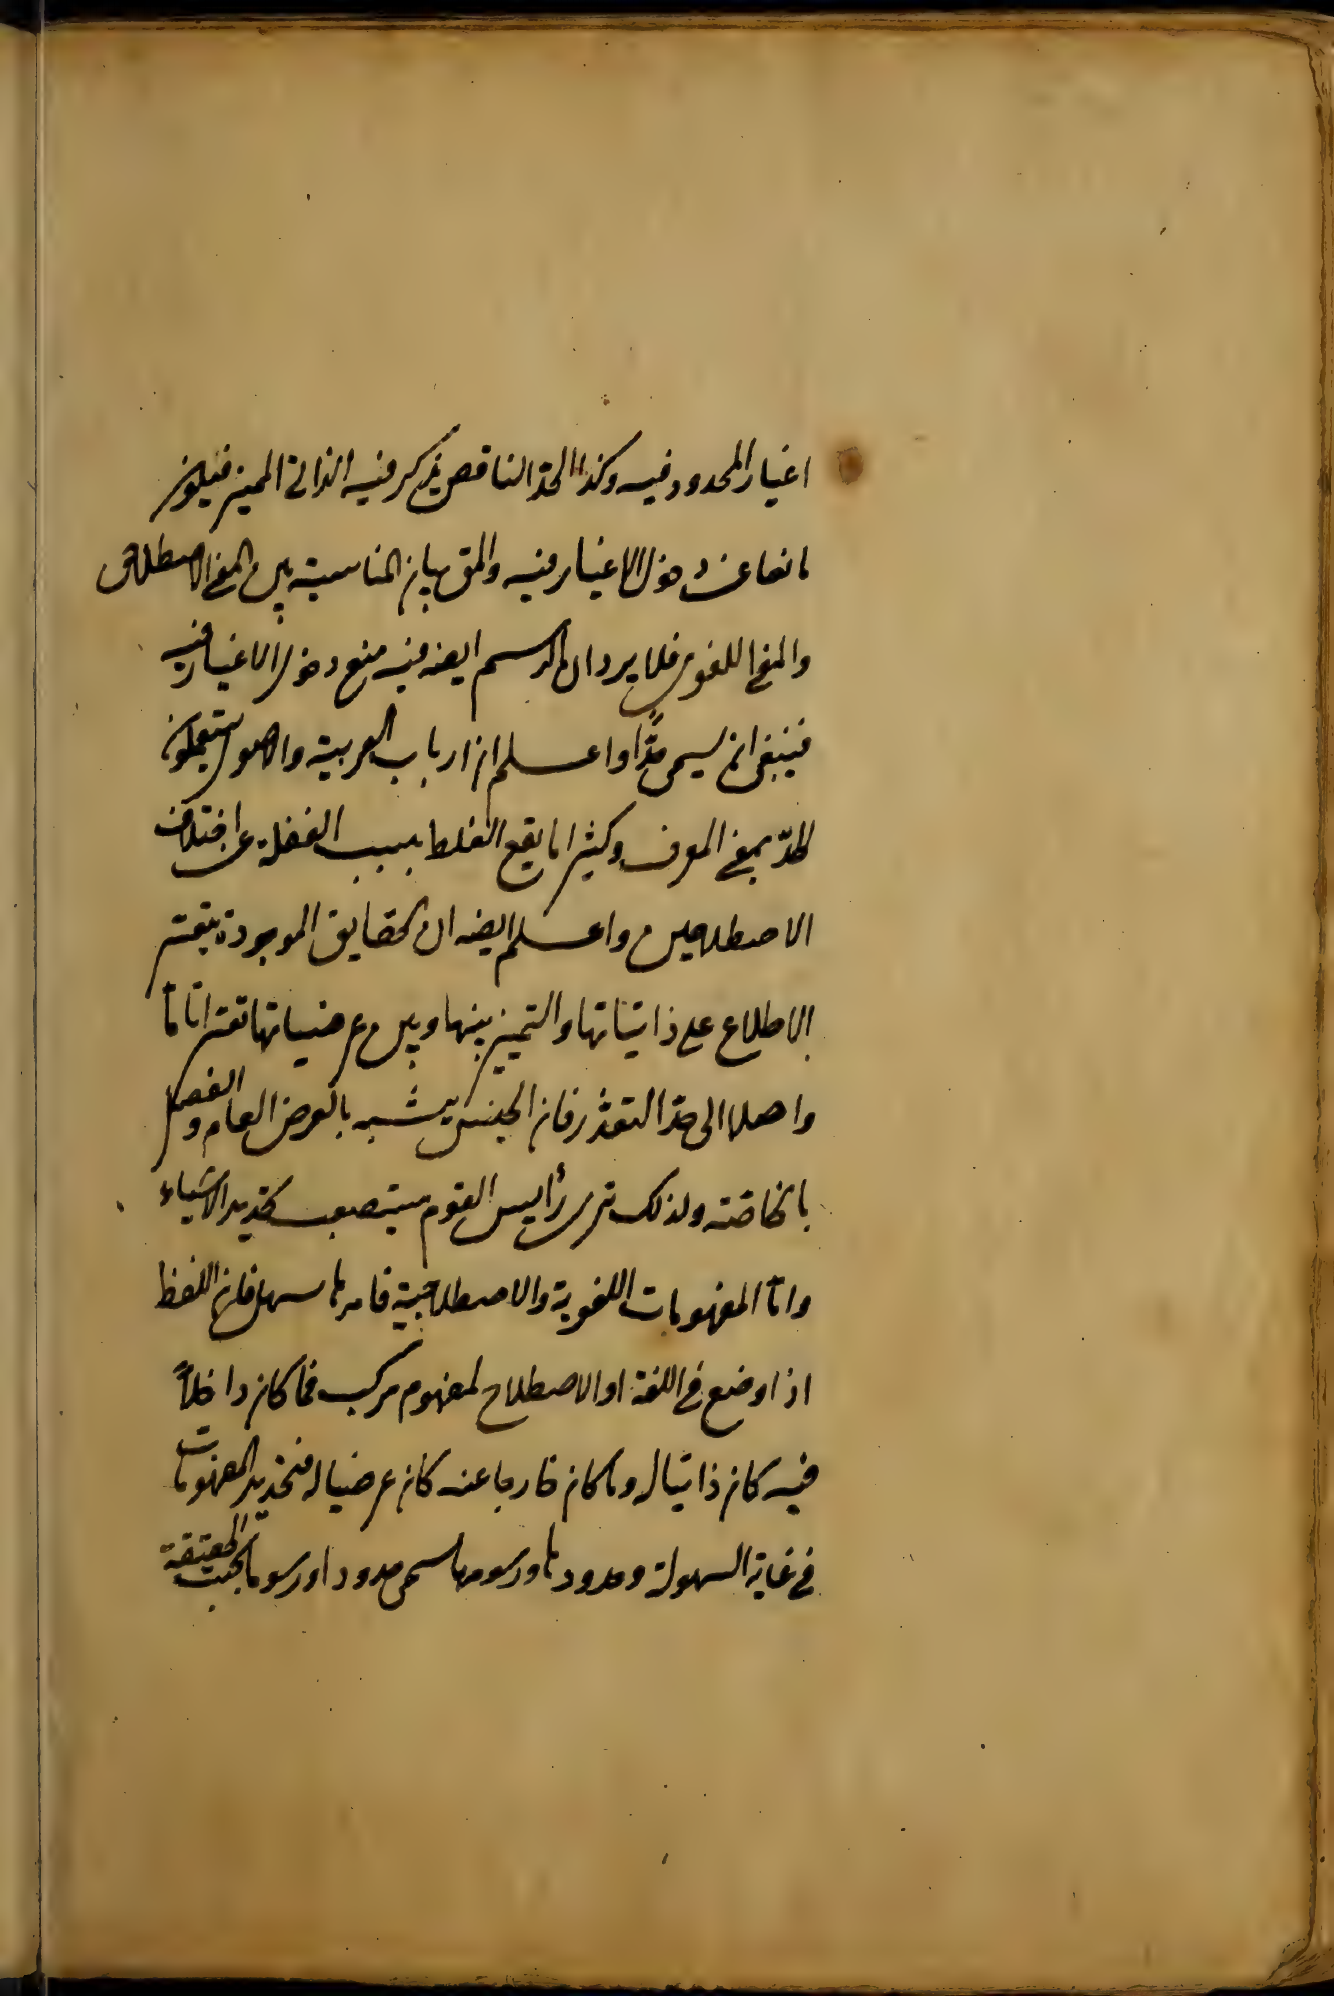 اغيار المحدود فيه وكذا الحدّ الناقص يذكر فيه الذاتي المميز فيكون
مانعا عن دخول الاغيار فيه والمق بيان المناسبة بين المعنى الاصطلاحى
والمعنى اللغوى فلا يرد ان الرسم ايضه فيه منع دخول الاغيار فيه
فينبغى ان يسمى حدًّا واعلم ان ارباب العربية والاصول يستعملون
الحدّ بمعنى المعرف وكثيرا ما يقع الغلط بسبب الغفلة عن اختلاف
الاصطلاحين واعلم ايضه ان الحقايق الموجودة يتعسّر
الاطلاع على ذاتيّاتها والتميز بينها وبين عرضياتها تعسّرا تامّا
واصلا الى حدّ التعذّر فان الجنس يشتبه بالعرض العام والفصل
بالخاصّة ولذلك ترى رأيس القوم يستصعب تحديد الاشياء
وامّا المفهومات اللغوية والاصطلاحية فامرها سهل فان اللفظ
اذا وضع فى اللغة او الاصطلاح لمفهوم مركب فما كان داخلاً
فيه كان ذاتيّا له وما كان خارجا عنه كان عرضيا له فتحديد المفهومات
فى غاية السهولة وحدودها ورسومها يسمى حدودا ورسوما بحسب الحقيقة